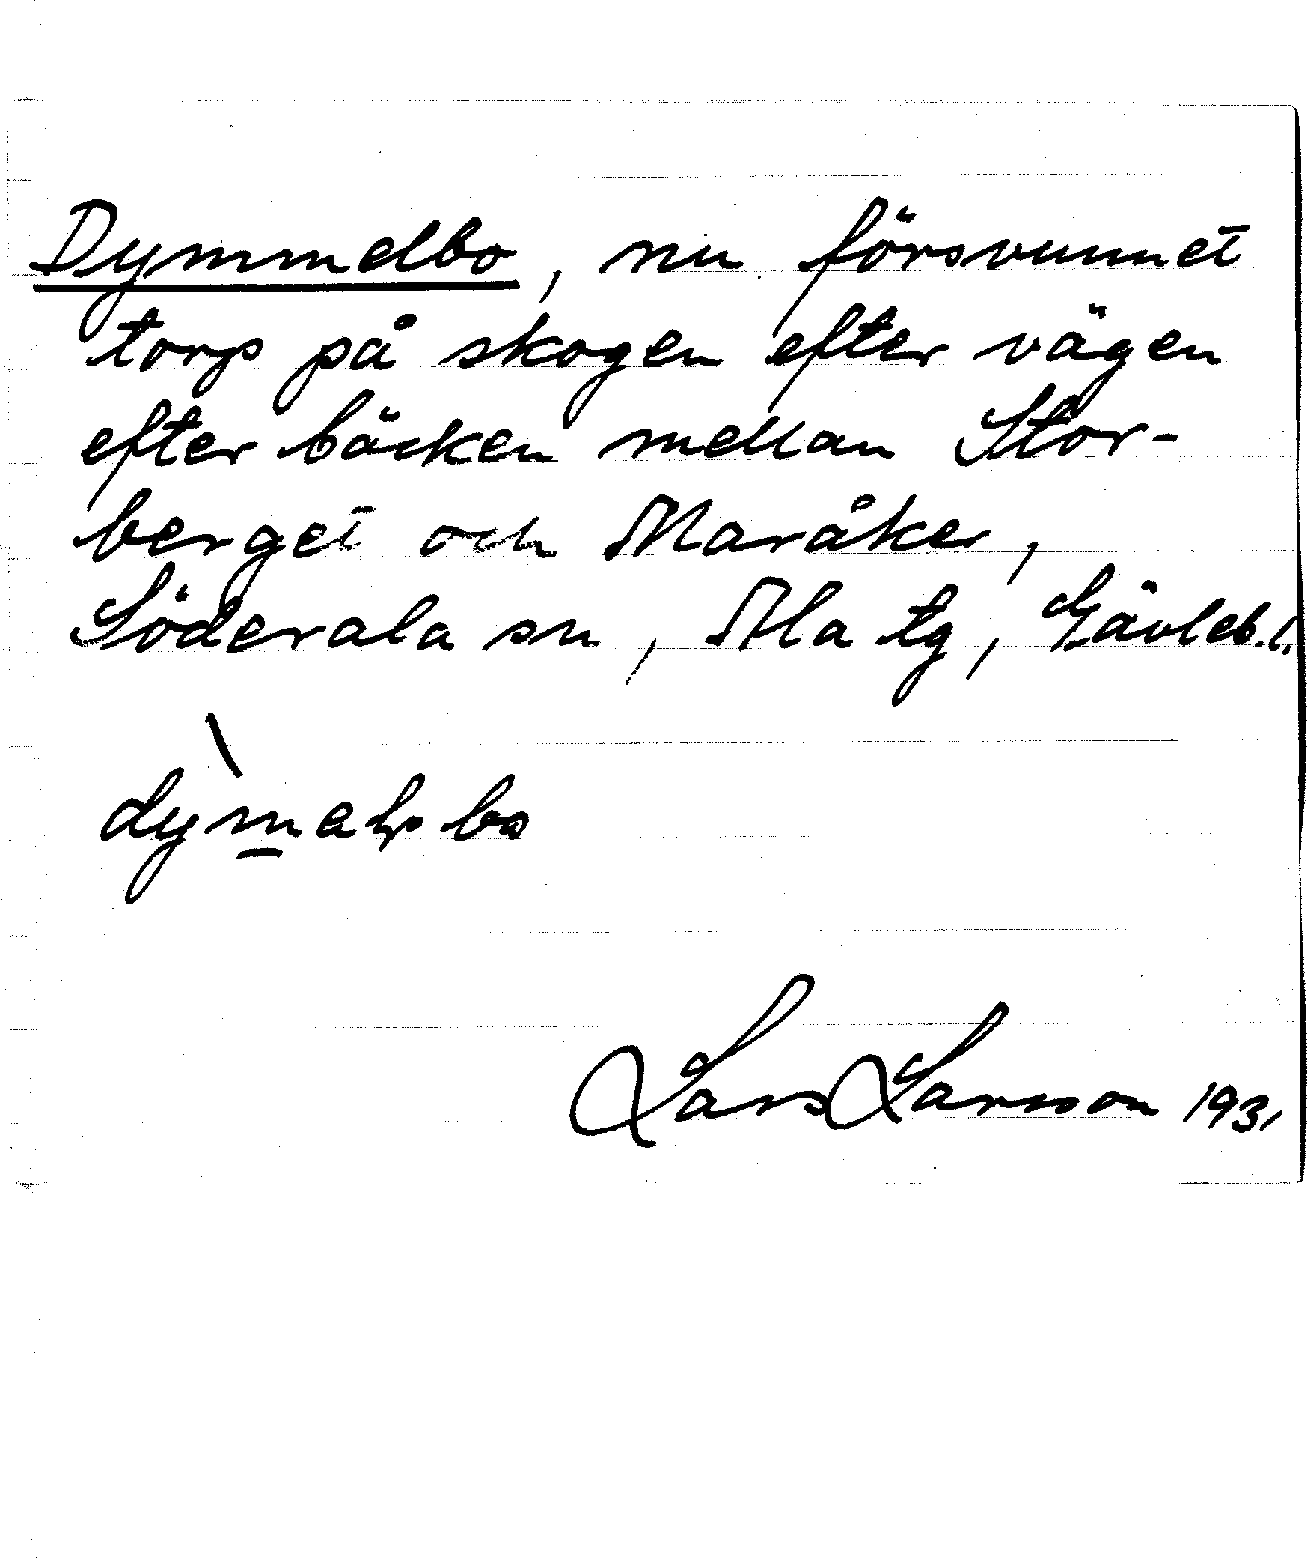 Dymmelbo, nu försvunnet
torp på skogen efter vägen
efter bäcken mellan Stor-
berget och Maråker,
Söderala sn, Ala tg, Gävleb.l.
Lars Larsson 1931